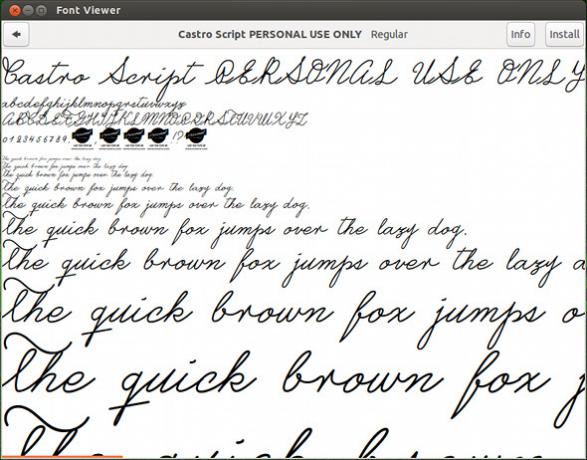 Font Viewer
Castro Script PERSONAL USE ONLY Regular
Info
Install
Castro Script PERSONAL USE ONLY
abcdefghijklmnopqrstuvwxyz
ABCDEFGHIJKLMNOPQRSTUVWXYZ
0123456789., !?
The quick brown fox jumps over the lazy dog.
The quick brown fox jumps over the lazy dog.
The quick brown fox jumps over the lazy dog.
The quick brown fox jumps over the lazy dog.
The quick brown fox jumps over the lazy dog.
The quick brown fox jumps over the lazy dog.
The quick brown fox jumps over the lazy
The quick brown fox jumps
The quick brown fox
The quick brown